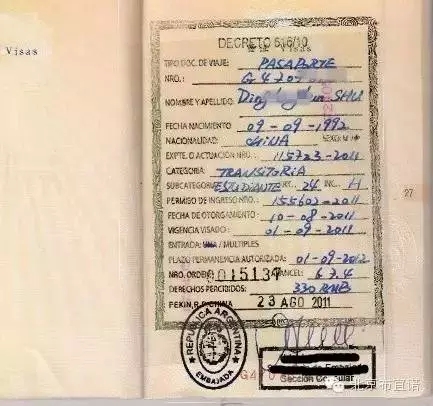 Visas
DECRETO 616/10
Visas
TIPO DOC. DE VIAJE: PASAPORTE
NRO.: G4707
NOMBRE Y APELLIDO: Ding SHU
FECHA NACIMIENTO 09-09-1992
NACIONALIDAD: CHINA SEXO: M
EXPTE. O ACTUACIÓN NRO.: 115723-2011
CATEGORIA: TRANSITORIA
SUBCATEGORIA: ESTUDIANTE ART. 24 INC. H
PERMISO DE INGRESO NRO.: 155602-2011
FECHA DE OTORGAMIENTO: 10-08-2011
VIGENCIA VISADO: 01-09-2011
ENTRADA: UNA / MULTIPLES
PLAZO PERMANENCIA AUTORIZADA: 01-09-2012
NRO. ORDEN 015137 ARANCEL: 67.4
DERECHOS PERCIBIDOS: 330 RMB
PEKIN, R.P. CHINA 23 AGO 2011
27
REPUBLICA ARGENTINA
EMBAJADA
Sección Consular
北京布宜诺